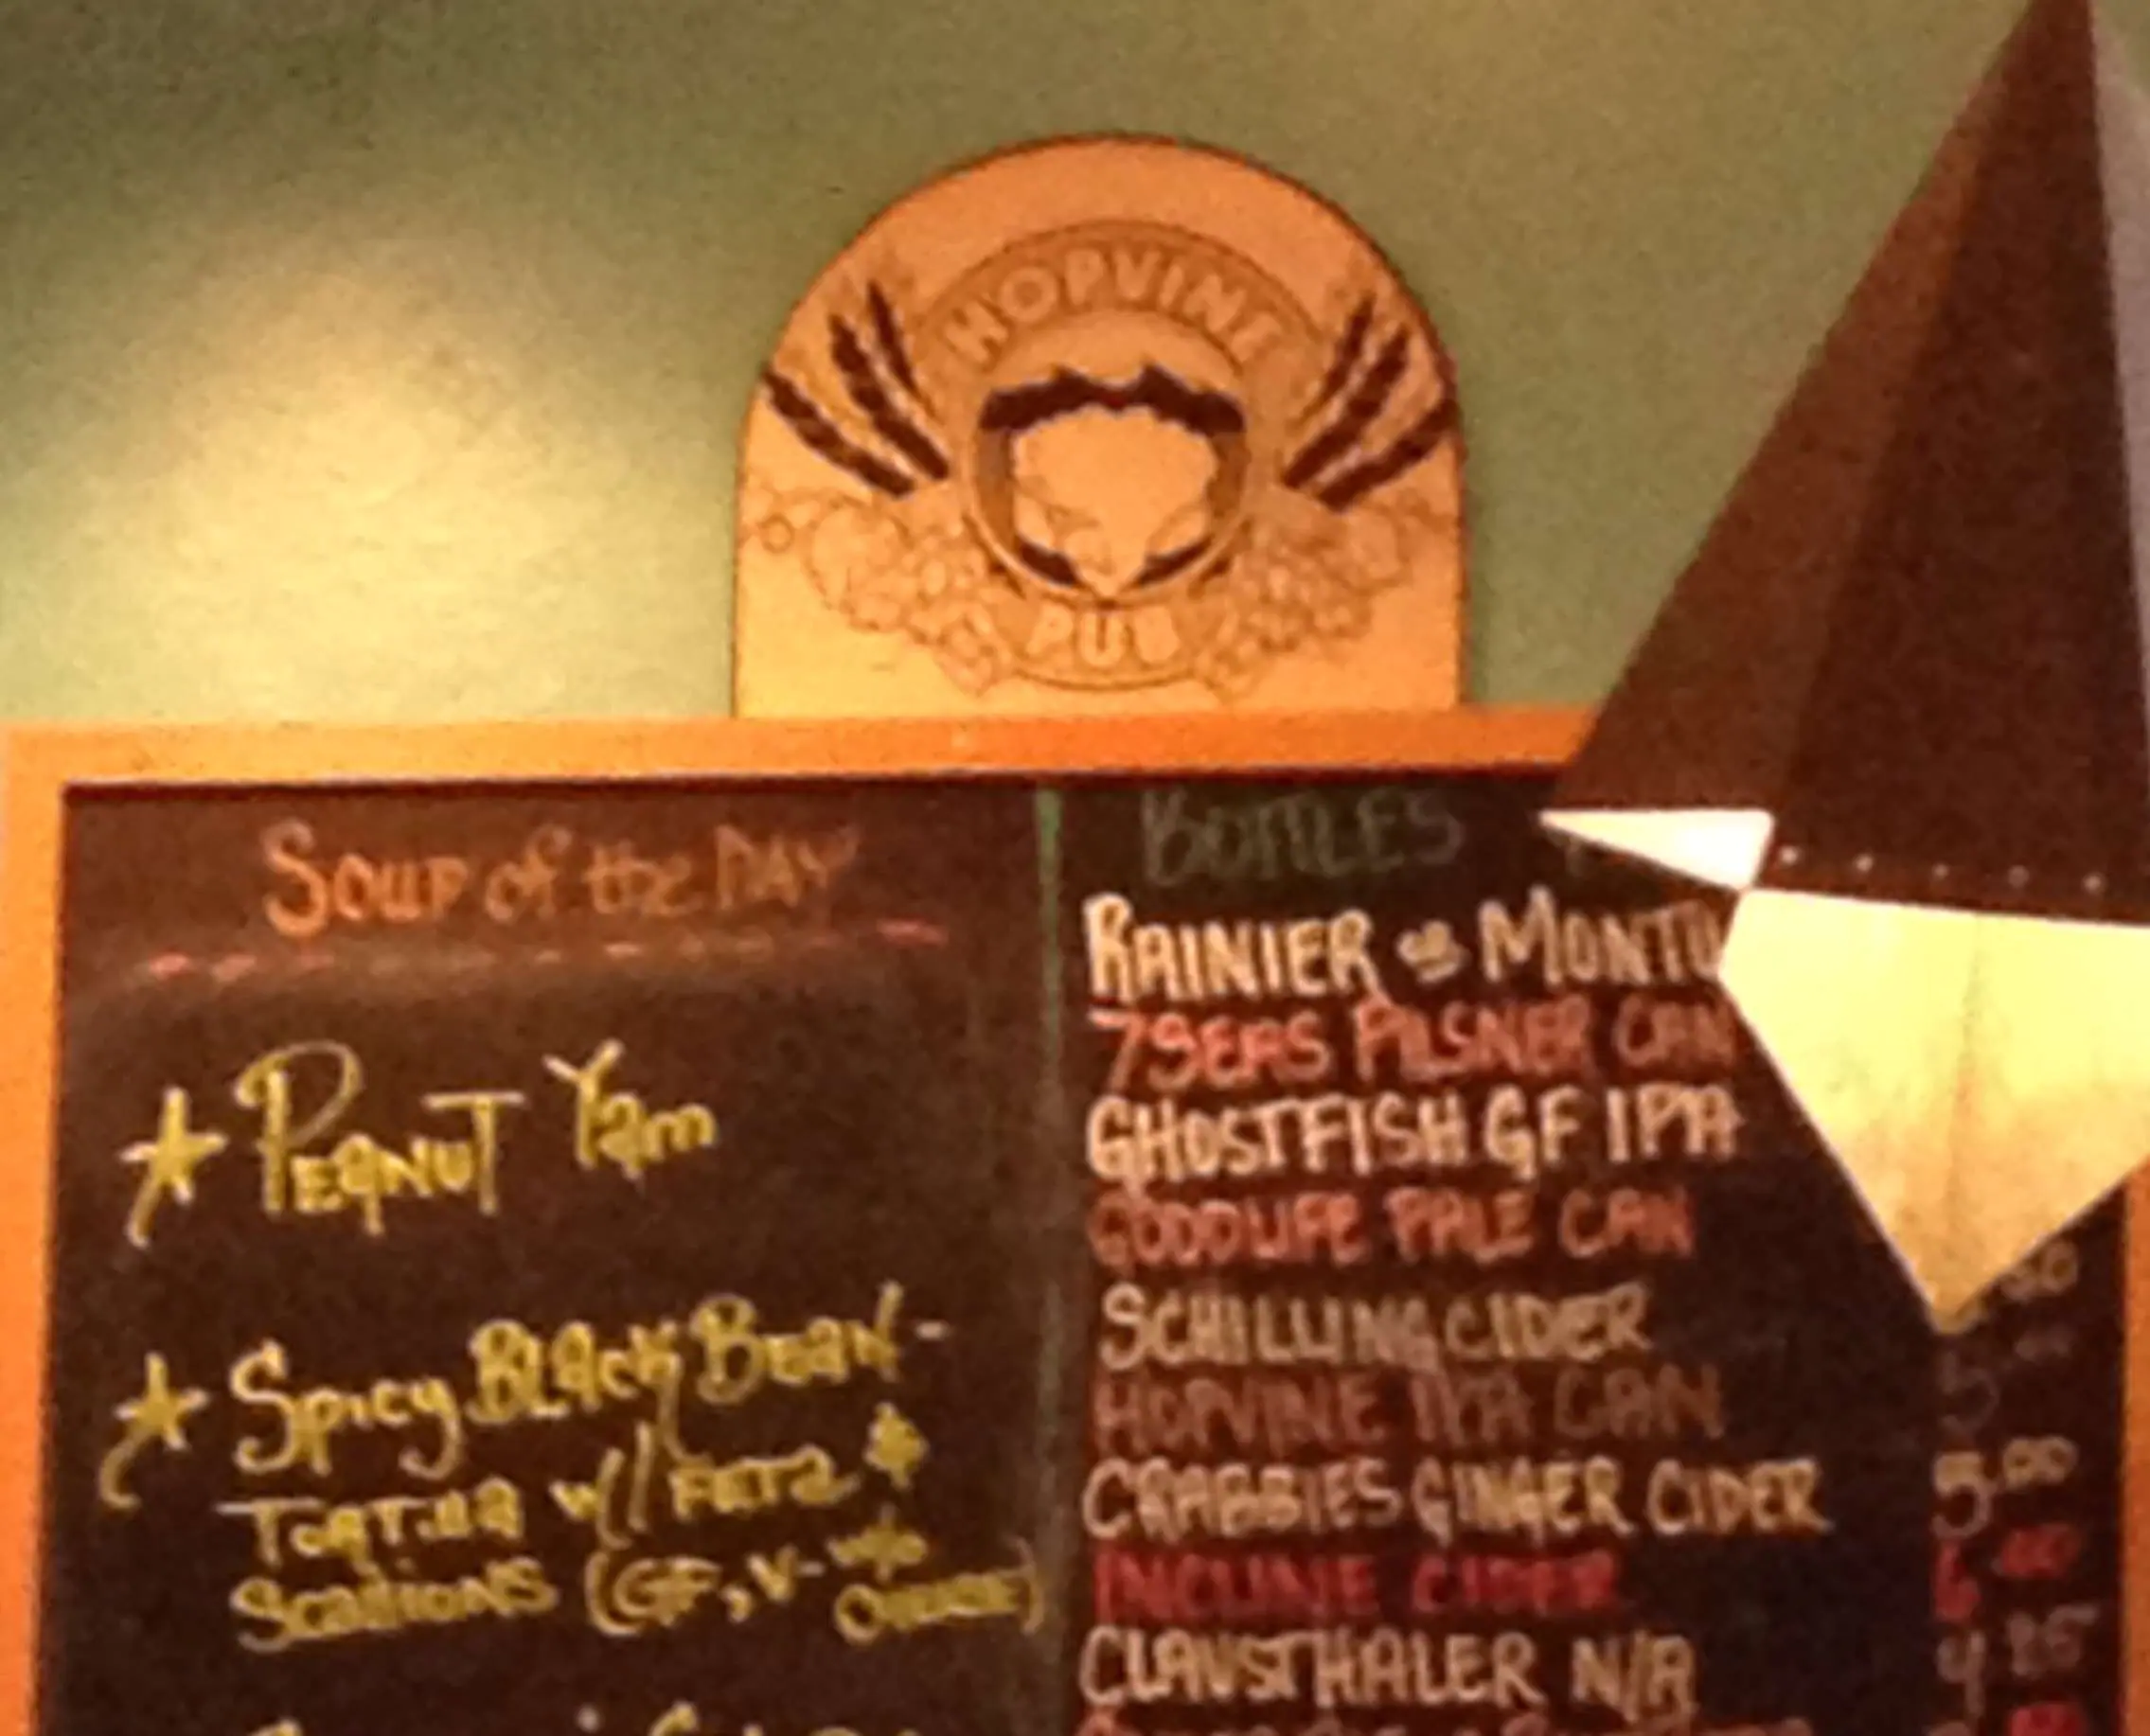 HOPVINE
PUB
SOUP of the DAY
PEANUT Yam
Spicy BLACK BEAN -
TORTILLA w/ FETA &
Scallions (GF, V- w/o
CHEESE)
BOTTLES
RAINIER or MONTU
7 SEAS PILSNER CAN
GHOSTFISH GF IPA
GOODLIFE PALE CAN
SCHILLING CIDER
HOPVINE IPA CAN
CRABBIES GINGER CIDER 5.00
INCLINE CIDER
CLAUSTHALER N/A